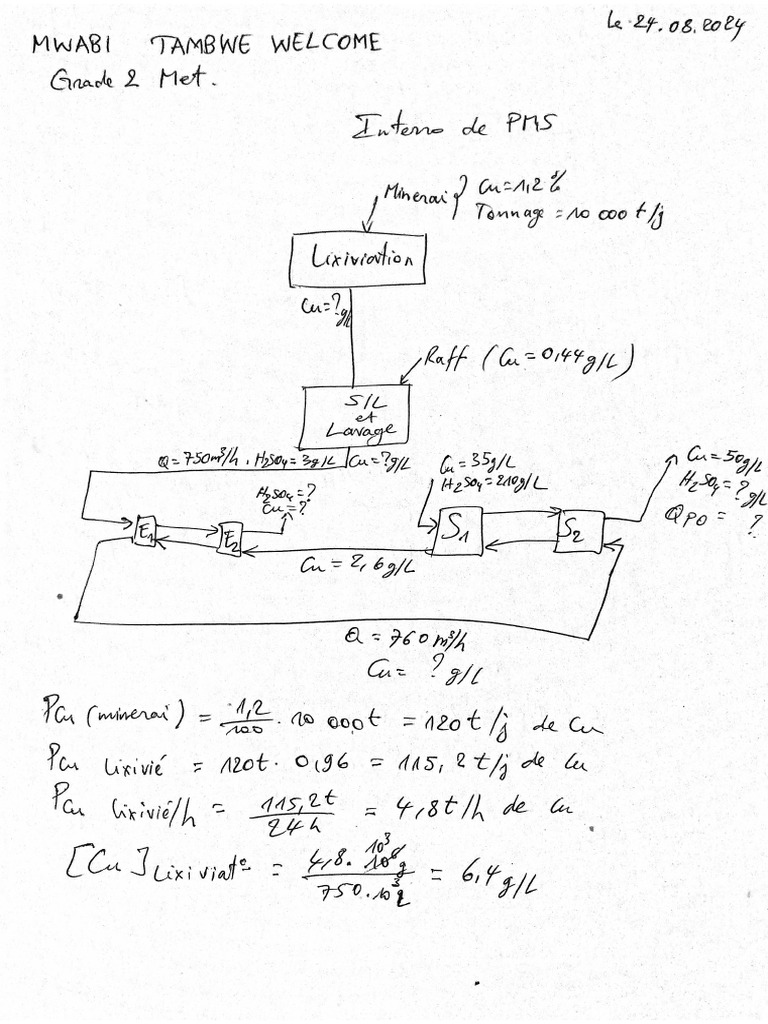 Le 24.08.2024
MWABI TAMBWE WELCOME
Grade 2 Met.
Interro de PMS
Minerai { Cu = 1,2 %
Tonnage = 10 000 t/j
Lixiviation
Cu = ? g/L
Raff (Cu = 0,44 g/L)
S/L
et
Lavage
Q = 750 m³/h, H₂SO₄ = 3 g/L
Cu = ? g/L
Cu = 35 g/L
H₂SO₄ = 210 g/L
Cu = 50 g/L
H₂SO₄ = ? g/L
Q PO = ?
H₂SO₄ = ?
Cu = ?
E₁
E₂
S₁
S₂
Cu = 2,6 g/L
Q = 760 m³/h
Cu = ? g/L
PCu (minerai) = 1,2/100 . 10 000 t = 120 t/j de Cu
PCu lixivié = 120t . 0,96 = 115,2 t/j de Cu
PCu lixivié/h = 115,2 t/24 h = 4,8 t/h de Cu
[Cu] Lixiviat° = 4,8 . 10³ g/750 . 10³ l = 6,4 g/L